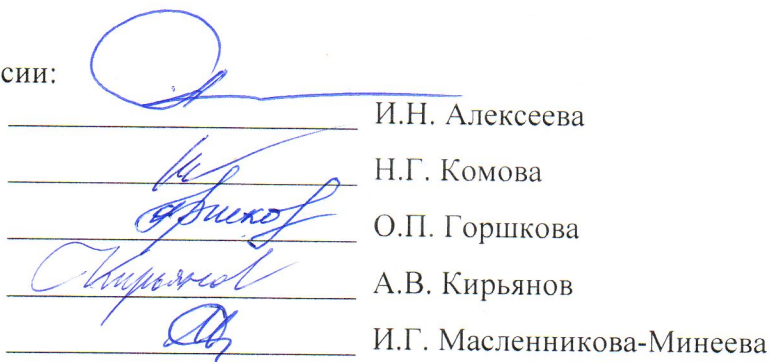 сии:
И.Н. Алексеева
Н.Г. Комова
О.П. Горшкова
А.В. Кирьянов
Кирьянов
И.Г. Масленникова-Минеева